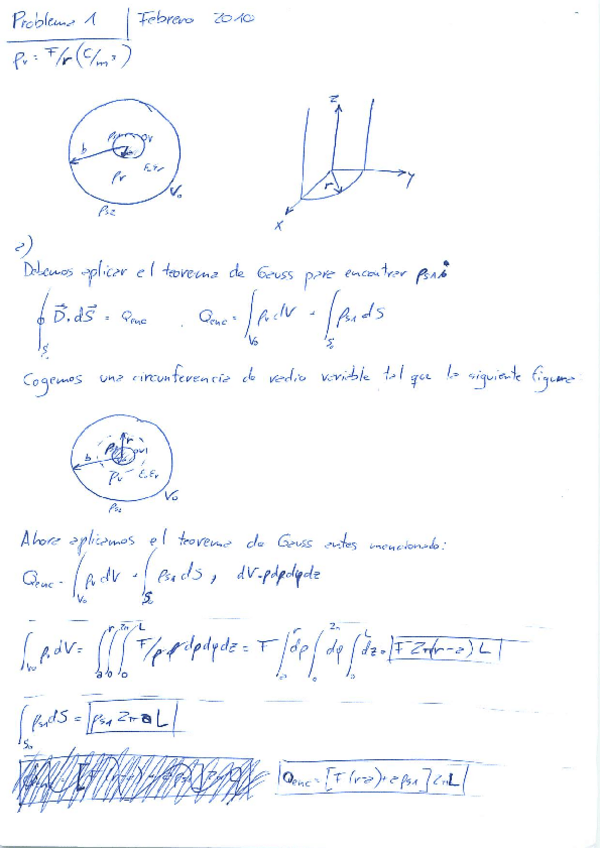 Problema 1 | Febrero 2010
ρv = F/r (C/m³)
b
ρv
ε₀εr
V₀
ρs2
z
r
y
x
a)
Debemos aplicar el teorema de Gauss para encontrar ρs1
∮ D⃗·dS⃗ = Qenc . Qenc = ∫ ρv dV + ∫ ρs1 dS
S V₀ S₀
Cogemos una circunferencia de radio variable tal que la siguiente figura:
r
b
ρv
ε₀εr
V₀
ρs2
Ahora aplicamos el teorema de Gauss antes mencionado:
Qenc = ∫V₀ ρv dV + ∫S₀ ρs1 dS, dV = ρdρdφdz
∫V₀ ρv dV = ∫ₐʳ ∫₀²π ∫₀ᴸ F/ρ ρ dρdφdz = F ∫ₐʳ dρ ∫₀²π dφ ∫₀ᴸ dz = F 2π(r-a) L
∫S₀ ρs1 dS = ρs1 2π a L
Qenc = [F(r-a) + aρs1] 2πL